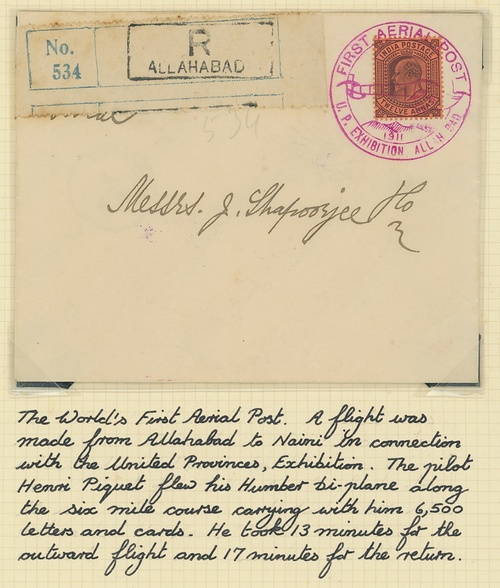 No.
534
R
ALLAHABAD
FIRST AERIAL POST
INDIA POSTAGE
TWELVE ANNAS
1911
U.P. EXHIBITION ALLAHABAD
534
Messrs. J. Shapoorjee
The World's First Aerial Post. A flight was
made from Allahabad to Naini In connection
with the United Provinces, Exhibition. The pilot
Henri Piquet flew his Humber bi-plane along
the six mile course carrying with him 6,500
letters and cards. He took 13 minutes for the
outward flight and 17 minutes for the return.